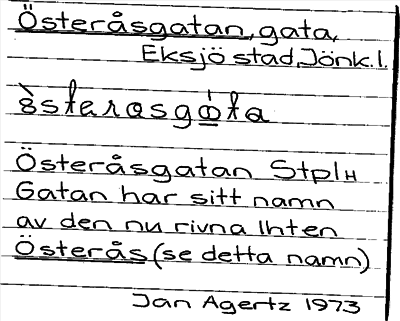 Österåsgatan, gata,
Eksjö stad, Jönk.l.
österåsgata
Österåsgatan StplH
Gatan har sitt namn
av den nu rivna lhten
Österås (se detta namn)
Jan Agertz 1973